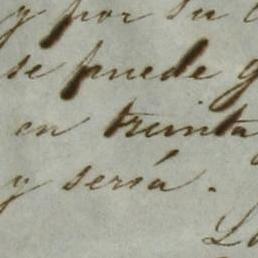 y por su
se puede
en treinta
y sería.